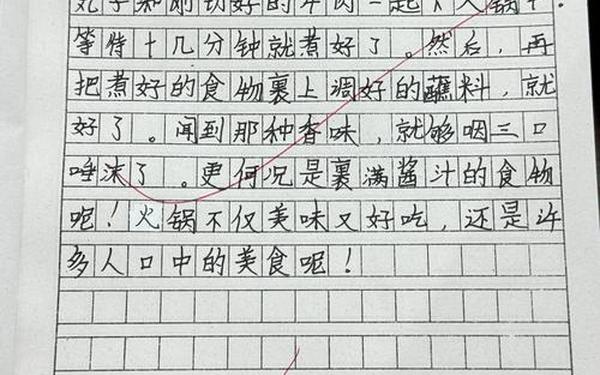 丸子和刚切好的牛肉一起下入锅中.
等待十几分钟就煮好了。然后，再
把煮好的食物裹上调好的蘸料，就
好了。闻到那种香味，就够咽三口
唾沫了。更何况是裹满酱汁的食物
呢！火锅不仅美味又好吃，还是许
多人口中的美食呢！